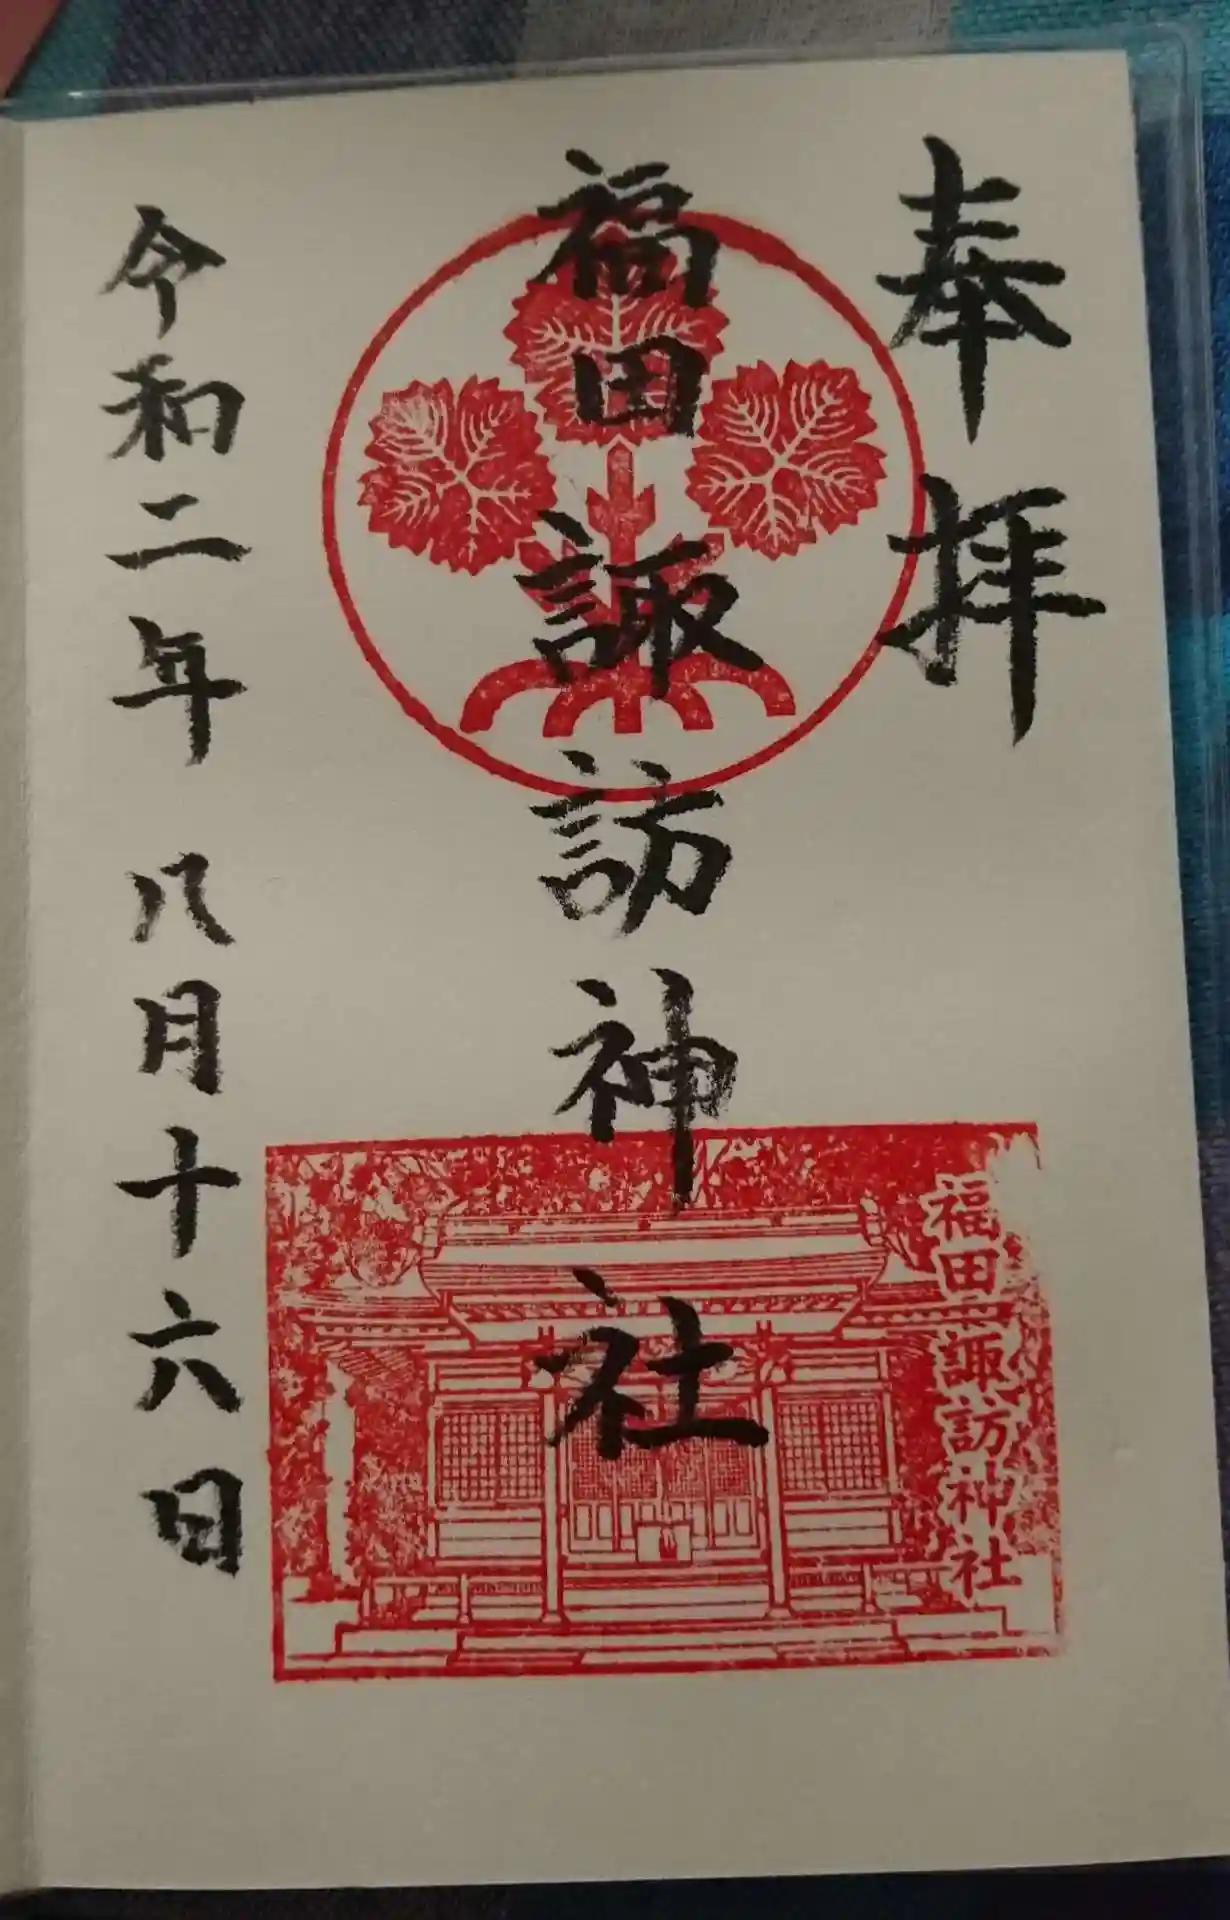 奉拝
福田諏訪神社
福田諏訪神社
令和二年 八月十六日